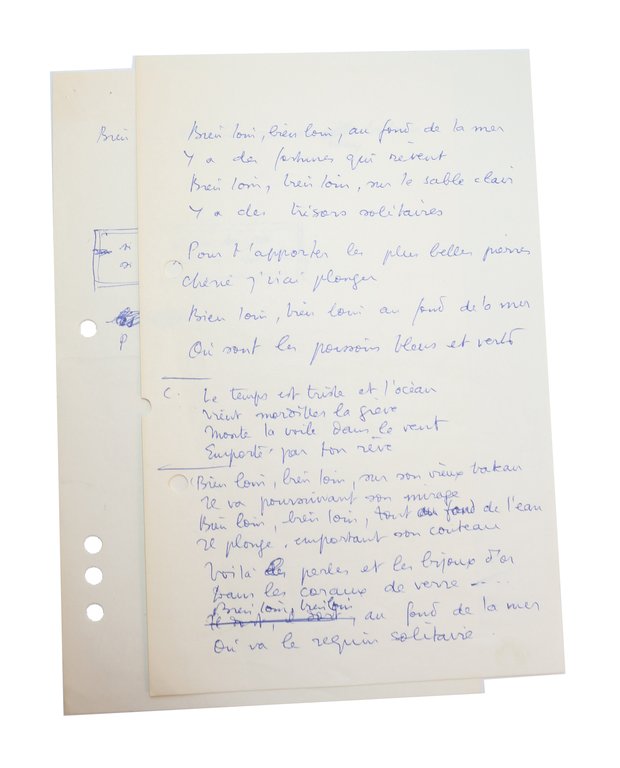 Bien loin, bien loin, au fond de la mer
Y a des fortunes qui rêvent
Bien loin, bien loin, sur le sable clair
Y a des trésors solitaires
Pour t'apporter les plus belles pierres
chérie j'irai plonger
Bien loin, bien loin au fond de la mer
Où sont les poissons bleus et verts
C. Le temps est triste et l'océan
vient mordiller la grève
Monte la voile dans le vent
Emporté par ton rêve
Bien loin, bien loin, sur son vieux bateau
Il va poursuivant son mirage
Bien loin, bien loin, tout au fond de l'eau
Il plonge, emportant son couteau
Voilà les perles et les bijoux d'or
Dans les coraux de verre
Bien loin, bien loin
il dort, il dort, au fond de la mer
Où va le requin solitaire.
Bien
P